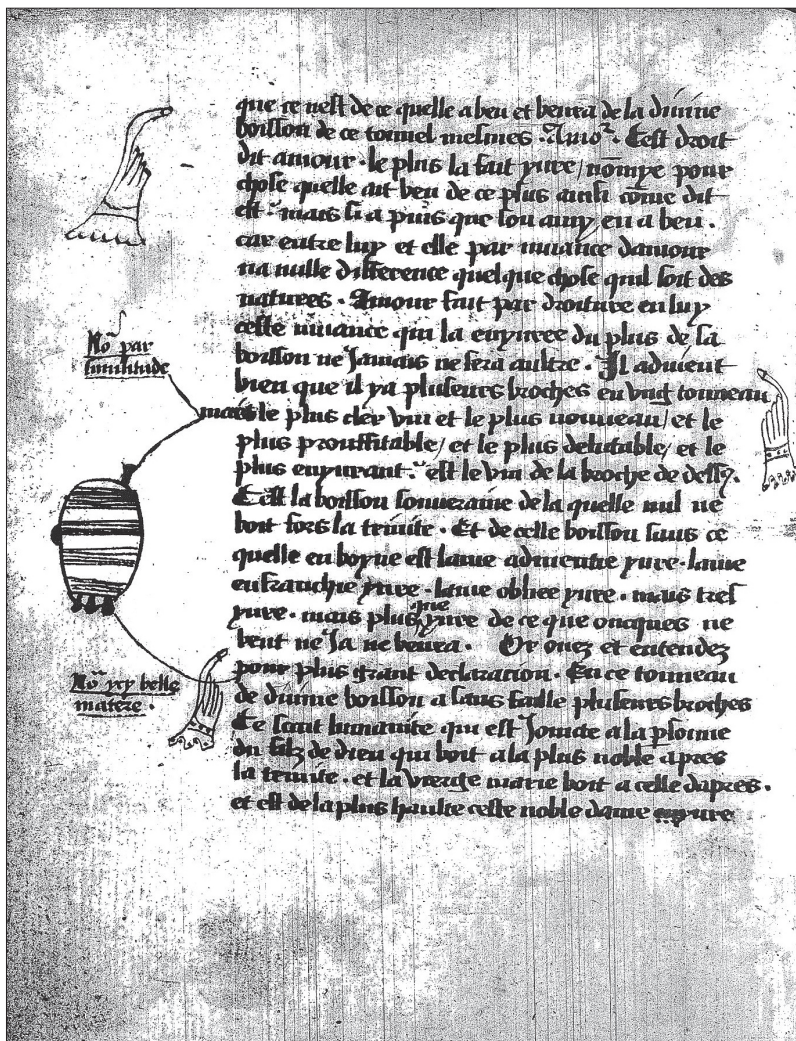 que ce nest de ce quelle a beu et beura de la divine
boisson de ce tonnel mesmes . Amoʳ . Cest droit
dit amour . le plus la fait yvre / nō mye pour
chose quelle ait beu de ce plus ainsi cōme dit
est . mais si a puis que son amy en a beu .
car entre luy et elle par muance damour
na nulle difference quelque chose quil soit des
natures . Amour fait par droiture en luy
ceste muance qui la enyvree du plus de sa
boisson ne Jamais ne sera aultre . Il advient
bien que il ya pluseurs broches en ung tonneau
mais le plus cler vin et le plus nouveau / et le
plus prouffitable / et le plus delitable / et le
plus enyvrant . est le vin de la broche de dessꝯ .
Cest la boisson souveraine de la quelle nul ne
boit fors la trinite . Et de celle boisson sans ce
quelle en boyve est lame adnientie yvre . lame
enfranchie yvre . lame obliee yvre . mais tres
yvre . mais plus que yvre de ce que oncques ne
beut ne Ja ne beura . Or oiez et entendez
pour plus grant declaracion . En ce tonneau
de divine boisson a sans faille pluseurs broches
Ce scait humanite qui est Jointe a la p̱sonne
du filz de dieu qui boit a la plus noble apres
la trinite . et la vierge marie boit a celle dapres .
et est de la plus haulte ceste noble dame yvre
Noᵃ par
similitude
Noᵃ ycy belle
matere .